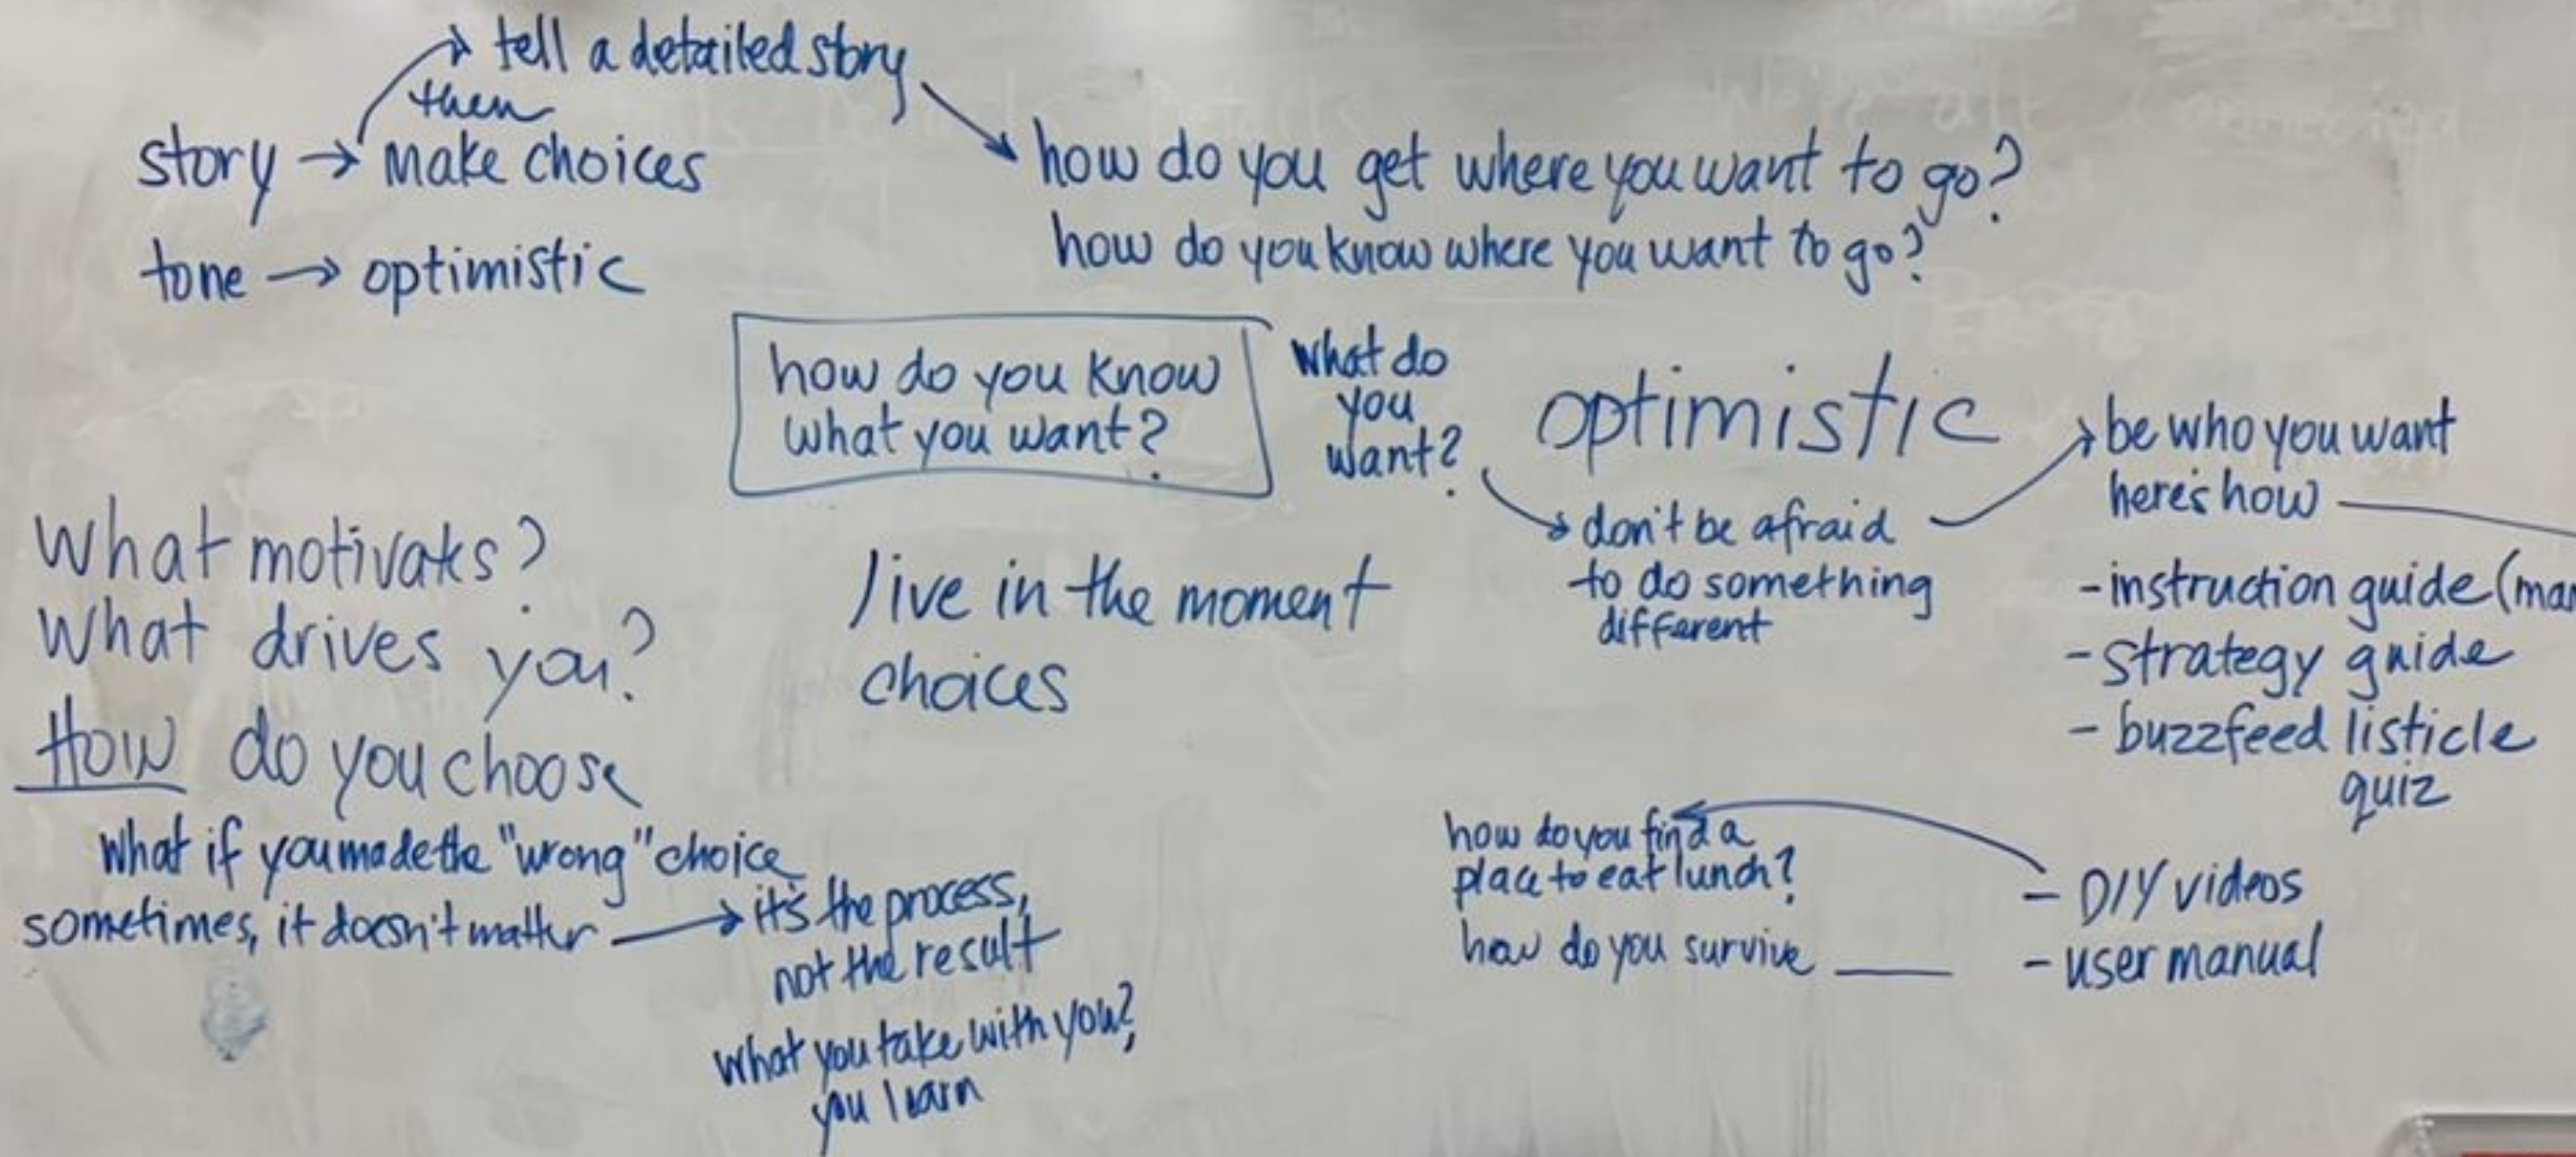 tell a detailed story
then
story → make choices
tone → optimistic
how do you get where you want to go?
how do you know where you want to go?
how do you know
what you want?
what do
you
want?
optimistic
don't be afraid
to do something
different
be who you want
here's how
-instruction guide (ma
-strategy guide
- buzzfeed listicle
quiz
What motivates?
What drives you?
How do you choose
live in the moment
choices
what if you made the "wrong" choice
sometimes, it doesn't matter → it's the process,
not the result
what you take with you?
you learn
how do you find a
place to eat lunch?
how do you survive ____
- DIY videos
- user manual